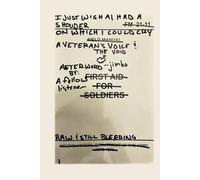 I JUST WISH I HAD A
SHOUDER FM 21-11
ON WHICH I COULD CRY
A VETERAN'S VOICE &
THE VOID
AFTERWORD - jimbo
BY:
A fellow FIRST AID
listener FOR
SOLDIERS
RAW & STILL BLEEDING